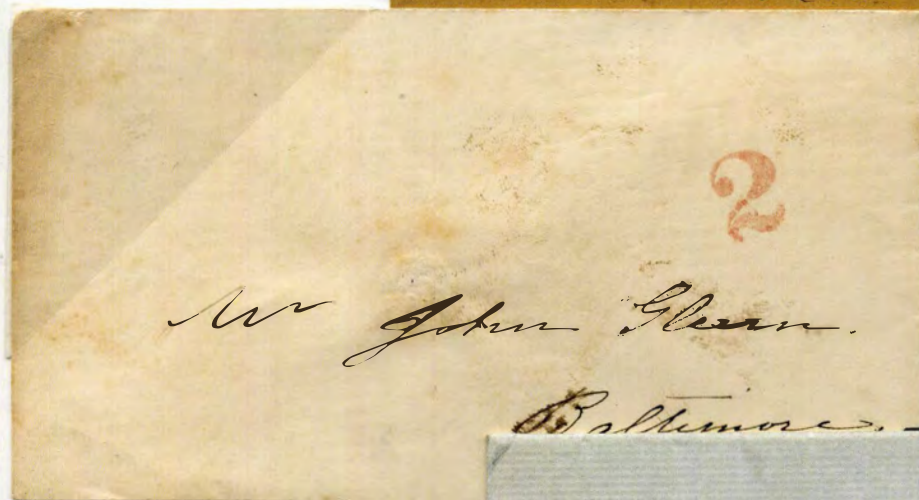 2
Mr John Glenn.
Baltimore. -